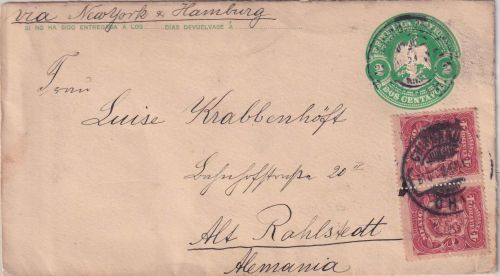 via New York & Hamburg
SI NO HA SIDO ENTREGADA A LOS DIAS DEVUELVASE A
2 2
DOS CENTAVOS
Frau
Luise Krabbenhöft
Bahnhofstraße 20
Alt Rahlstedt
Alemania